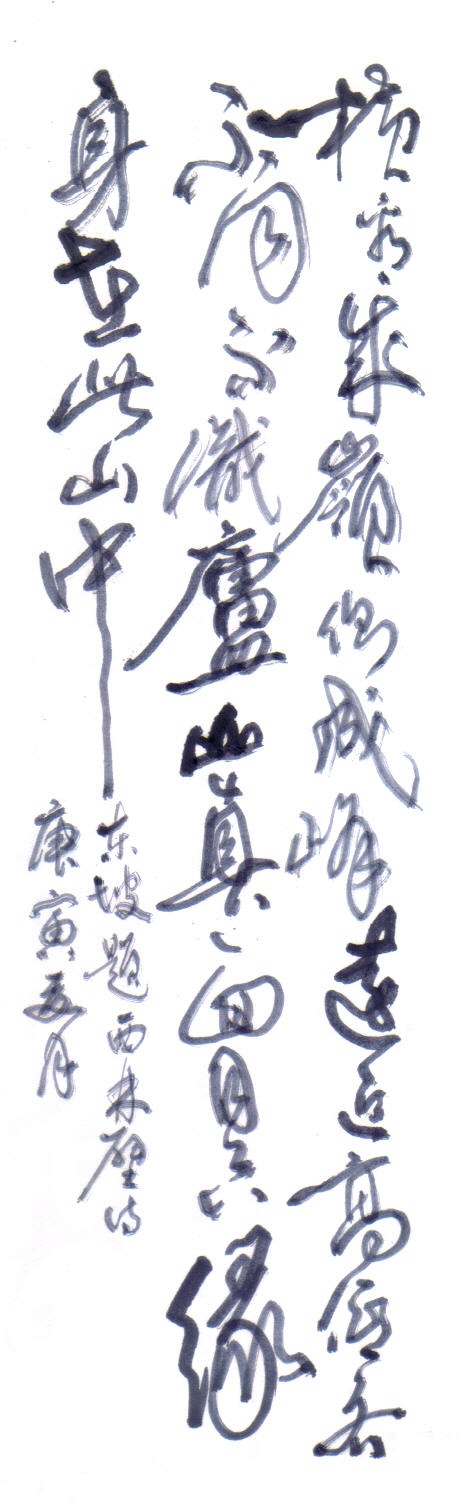 横看成嶺側成峰遠近高低各
不同不識廬山真面目只緣
身在此山中
东坡题西林壁诗
庚寅夏月